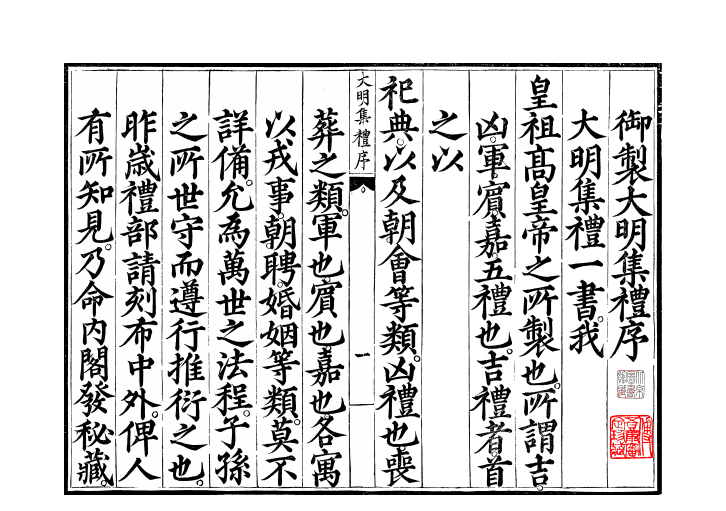 御製大明集禮序
大明集禮一書。我
皇祖高皇帝之所製也。所謂吉。
凶。軍。賓。嘉。五禮也。吉禮者。首
之以
祀典。以及朝會等類。凶禮也喪
大明集禮序
一
葬之類。軍也。賓也。嘉也。各寓
以戎事。朝聘。婚姻等類。莫不
詳備。允為萬世之法程。子孫
之所世守而遵行推衍之也。
昨歲禮部請刻布中外。俾人
有所知見。乃命內閣發秘藏。